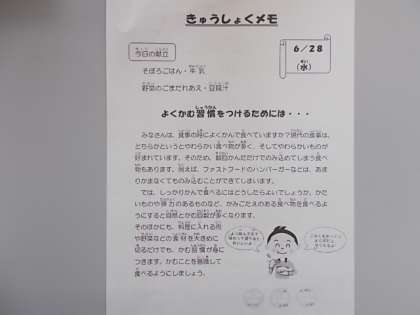 きゅうしょくメモ
今日の献立
6/28
(水)
そぼろごはん・牛乳
野菜のごまだれあえ・豆腐汁
よくかむ習慣をつけるためには・・・
みなさんは、食事の時によくかんで食べていますか？現代の食事は、
どちらかというとやわらかい食べ物が多く、そしてやわらかいものが
好まれています。そのため、数回かんだだけでのみ込めてしまう食べ
物もあります。例えば、ファストフードのハンバーガーなどは、あま
りかまなくてものみ込むことができてしまいます。
では、しっかりかんで食べるにはどうしたらよいでしょうか。かた
いものや弾力のあるものなど、かみごたえのある食べ物を食べるよ
うにすると自然とかむ回数が多くなります。
そのほかにも、料理に入れる肉
や野菜などの食材を大きめに
切るだけでも、かむ習慣が身に
つきます。かむことを意識して
食べるようにしましょう。